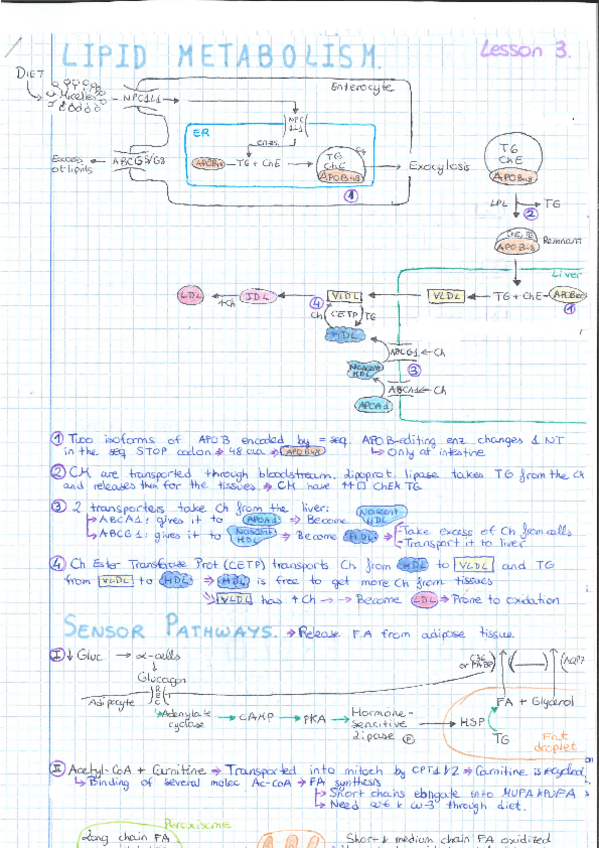 LIPID METABOLISM.
Lesson 3.
DIET
Micelles
NPC1L1
Enterocyte
NPC
1L1
ER
enzs.
TG
ChE
APOB48
TG + ChE
TG
ChE
APOB48
Exocytosis
Excess
of lipids
ABCG5/G8
①
TG
ChE
APOB48
LPL
TG
②
APOB48
Remnant
Liver
LDL
+Ch
IDL
④
VLDL
VLDL
TG + ChE
APOB100
①
Ch
CETP
TG
HDL
ABCG1
Ch
③
Nascent
HDL
ABCA1
Ch
APOA1
① Two isoforms of APOB encoded by = seq. APOB-editing enz. changes 1 NT
in the seq STOP codon → 48 aa → APOB48 ↳ Only at intestine
② CM are transported through bloodstream. Lipoprot. lipase takes TG from the CM
and releases them for the tissues. → CM have ↑↑[] ChE ≠ TG
③ 2 transporters take Ch from the liver:
↳ ABCA1: gives it to APOA1 → Become Nascent HDL
↳ ABCG1: gives it to Nascent HDL → Become HDL → - Take excess of Ch from cells
- Transport it to liver
④ Ch Ester Transferase Prot (CETP) transports Ch from HDL to VLDL and TG
from VLDL to HDL → HDL is free to get more Ch from tissues
VLDL has +Ch → → Become LDL → Prone to oxidation
SENSOR PATHWAYS. → Release FA from adipose tissue
Ⅰ ↓ Gluc → α-cells
Glucagon
Adipocyte
REC
Adenylate
cyclase
cAMP → PKA → Hormone-
sensitive
lipase Ⓟ
HSP
FA + Glycerol
TG
Fat
droplet
AQP7
Ⅱ Acetyl-CoA + Carnitine → Transported into mitoch by CPT1 & 2 → Carnitine is recycled
↳ Binding of several molec Ac-CoA → FA synthesis
↳ Short chains elongate into MUFA & PUFA
↳ Need ω-6 & ω-3 through diet.
Peroxisome
Long chain FA
Short & medium chain FA oxidized